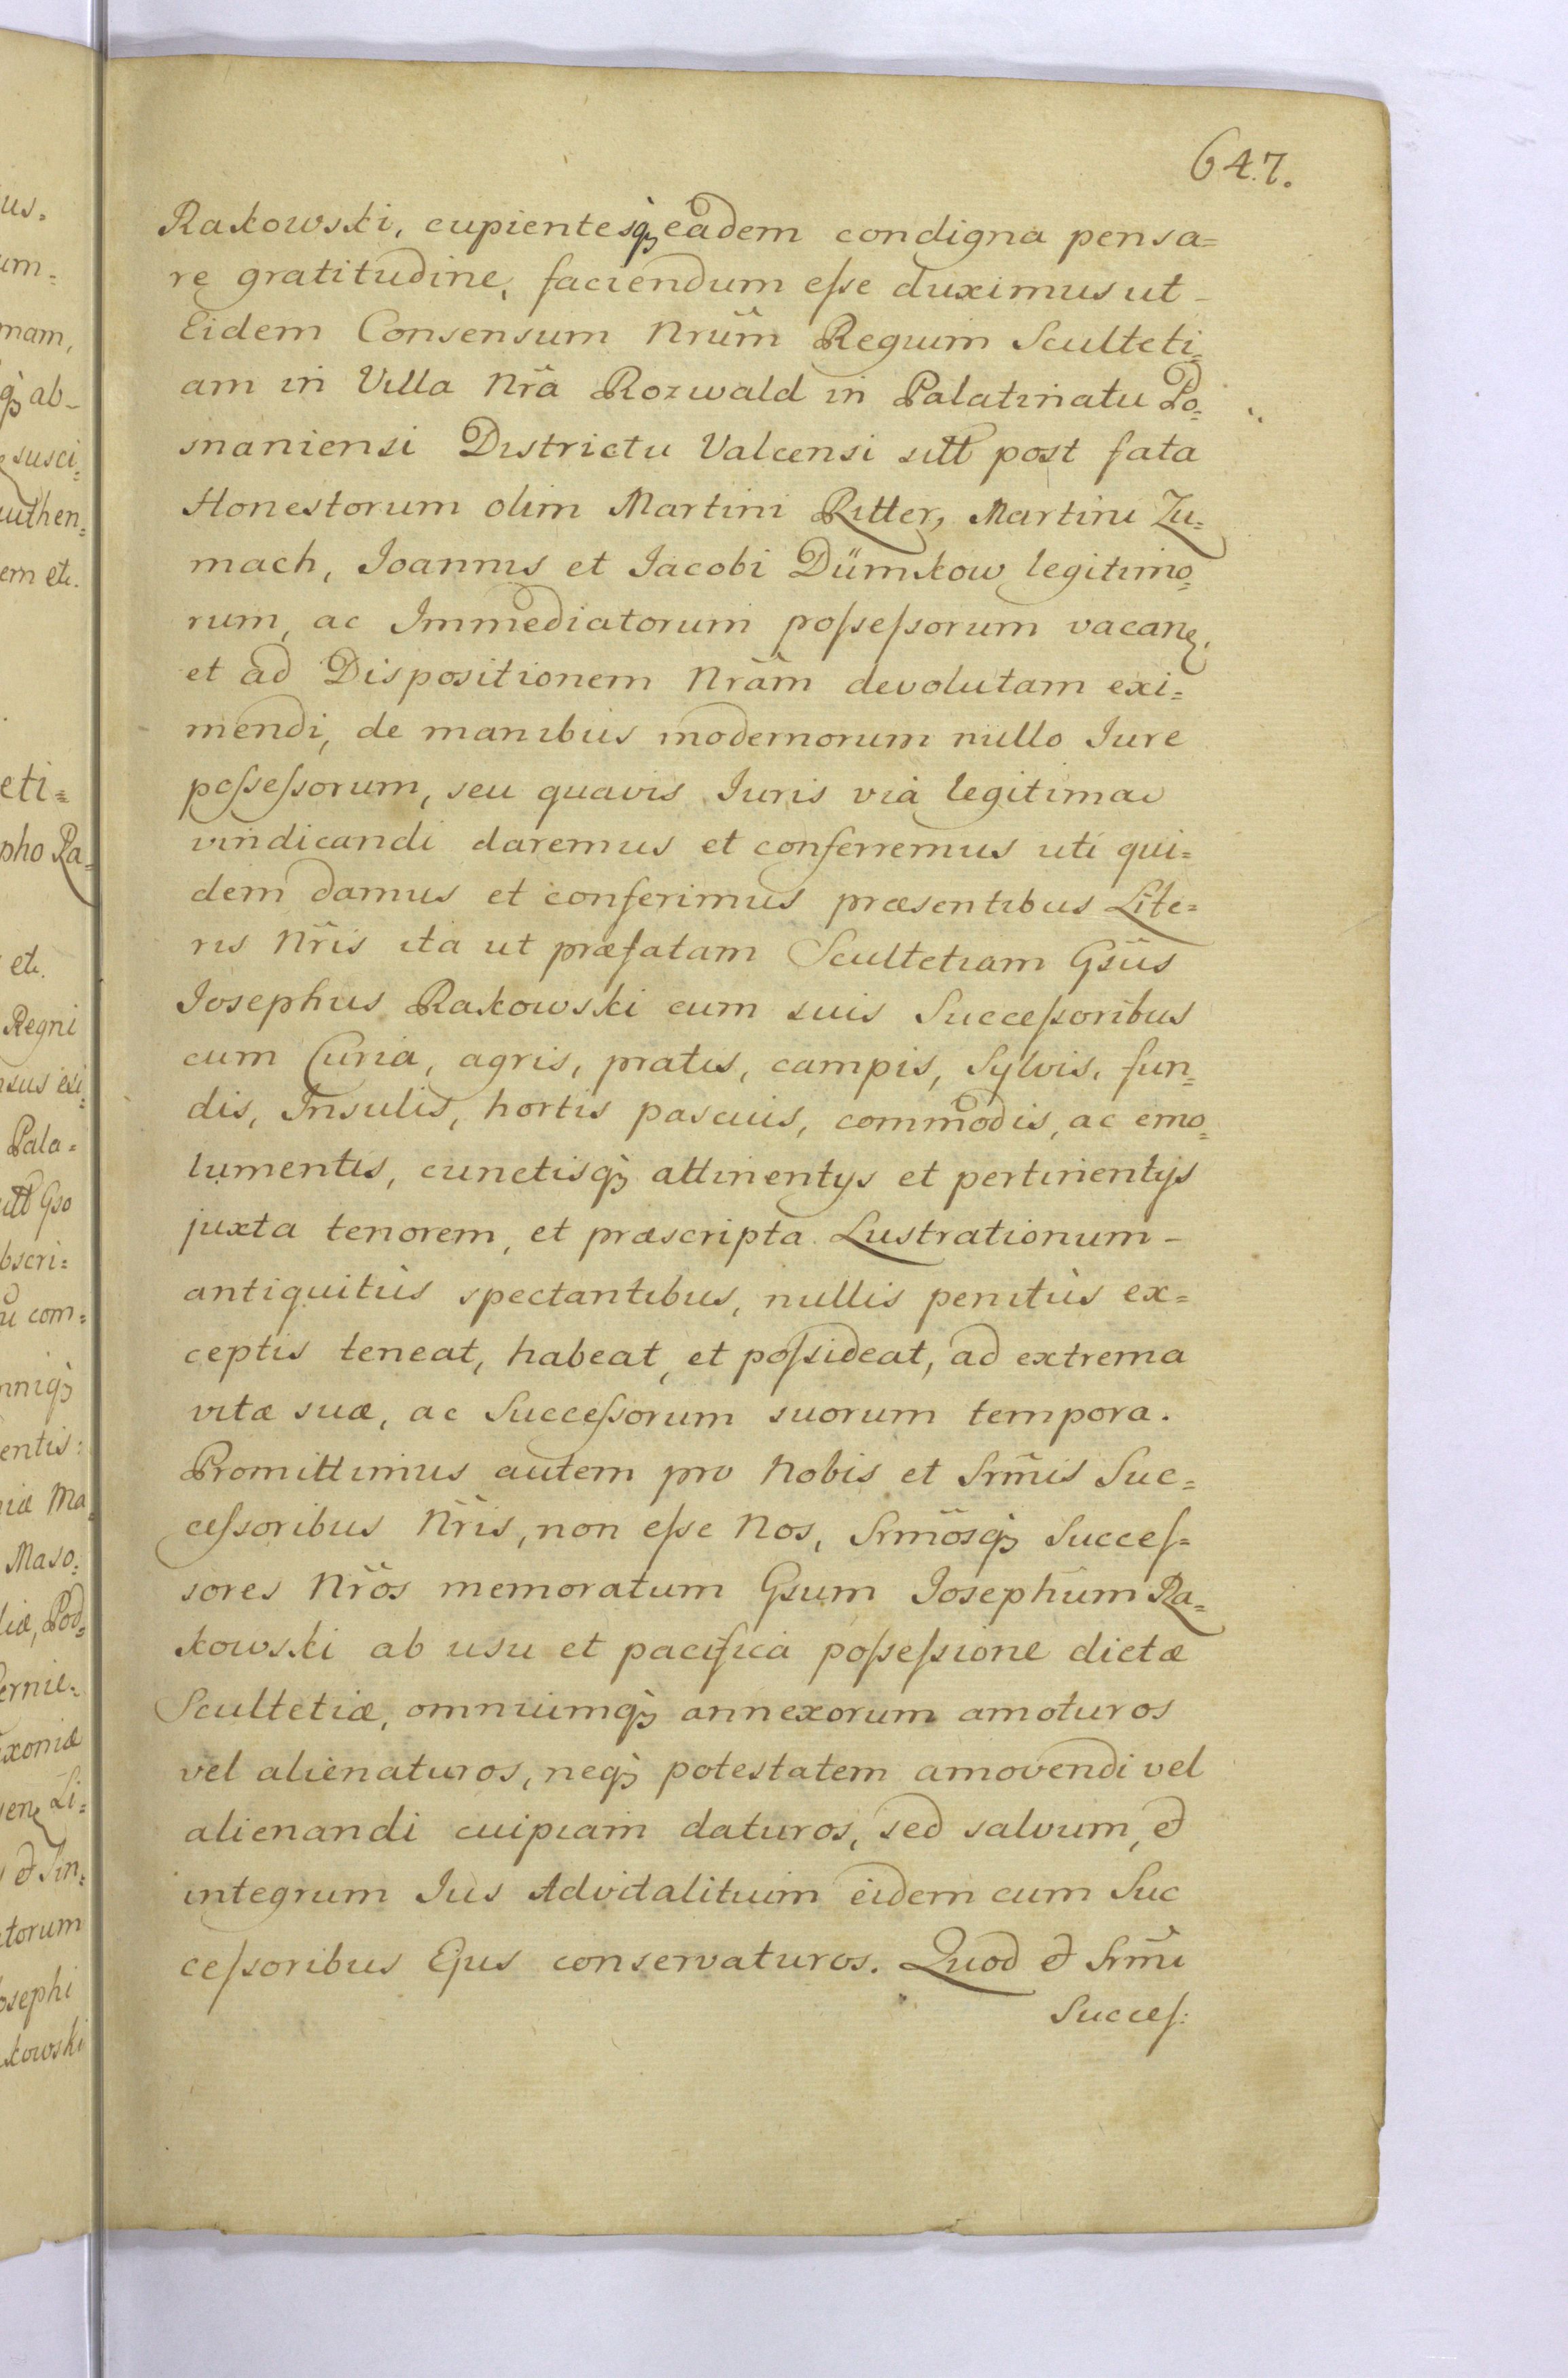 647.
Rakowski, cupientesq̀ȝ eâdem condigna pensa=
re gratitudine, faciendum eſse duximus ut –
Eidem Consensum Nrum̃ Regium Sculteti=
am in Villa Nrã Rozwald in Palatinatu Po=
snaniensi Districtu Valcensi sitt post fata
Honestorum olim Martini Ritter, Martini Zu=
mach, Joannis et Jacobi Dümkow legitimo=
rum, ac Immediatorum poſseſsorum vacanȩ,
et ad Dispositionem Nrãm devolutam exi=
mendi, de manibus modernorum nullo Jure
poſseſsorum, seu quavis Juris viâ legitima
vindicandi daremus et conferremus uti qui=
dem damus et conferimus præsentibus Lite=
ris Nr̃is ita ut præfatam Scultetiam Gsũs
Josephus Rakowski cum suis Succeſsoribus
cum Curia, agris, pratis, campis, Sylvis, fun=
dis, Insulis, hortis pascuis, commodis, ac emo=
lumentis, cunctisq̀ȝ attinentÿs et pertinentÿs
juxta tenorem, et præscripta Lustrationum –
antiquitùs spectantibus, nullis penitùs ex=
ceptis teneat, habeat, et poſsideat, ad extrema
vitæ suæ, ac Succeſsorum suorum tempora.
Promittimus autem pro Nobis et Srm̃is Suc=
ceſsoribus Nr̃is, non eſse Nos, Srm̃osq̀ȝ Succeſ=
sores Nrõs memoratum Gsum Josephum Ra=
kowski ab usu et pacifica poſseſsione dictæ
Scultetiæ, omniumq̀ȝ annexorum amoturos
vel alienaturos, neq̀ȝ potestatem amovendi vel
alienandi cuipiam daturos, sed salvum, et
integrum Jus Advitalitium eidem cum Suc
ceſsoribus Ejus conservaturos. Quod et Srm̃i
Succeſ: